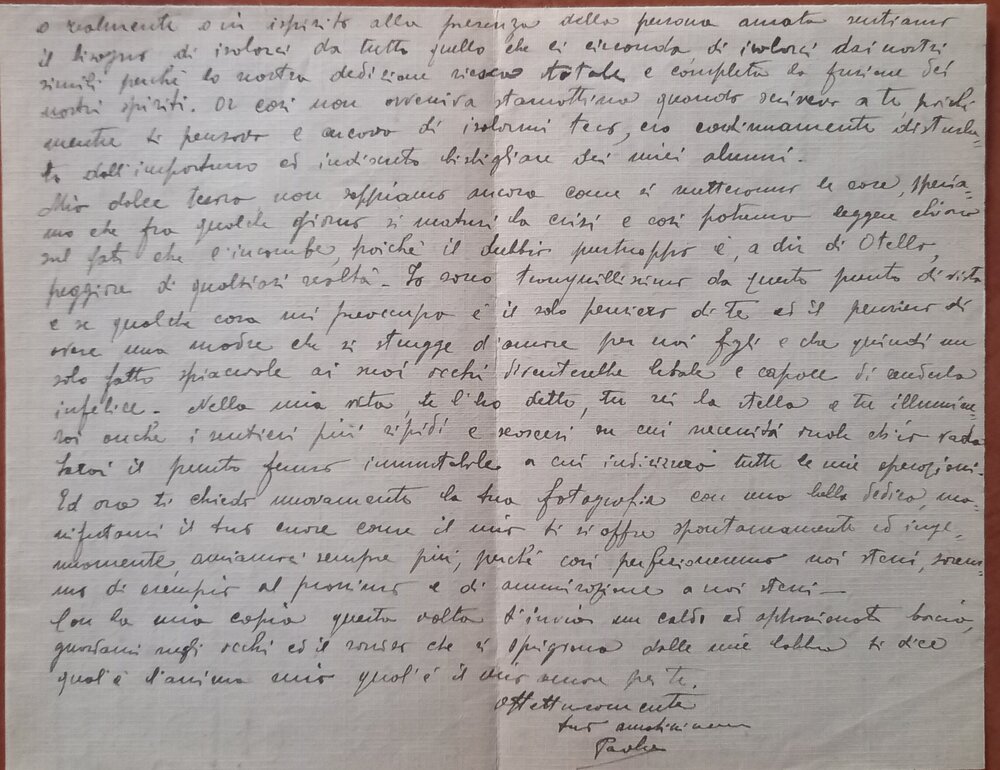 o realmente o in ispirito alla presenza della persona amata sentiamo
il bisogno di isolarci da tutto quello che ci circonda di isolarci dai nostri
simili perché la nostra dedizione riesca totale e completa la fusione dei
nostri spiriti. Or così non avveniva stamattina quando scrivevo a te, poiché
mentre ti pensavo e cercavo di isolarmi teco, ero continuamente disturba-
to dall'importuno ed indiscreto bisbigliare dei miei alunni.
Mio dolce tesoro non sappiamo ancora come si metteranno le cose, speria-
mo che fra qualche giorno si maturi la crisi e così potremo leggere chiaro
sul fato che c'incombe, poiché il dubbio purtroppo è, a dir di Otello,
peggiore di qualsiasi realtà - Io sono tranquillissimo da questo punto di vista
e se qualche cosa mi preoccupa è il solo pensiero di te ed il pensiero di
avere una madre che si strugge d'amore per noi figli e che quindi un
solo fatto spiacevole ai suoi occhi diventerebbe letale e capace di renderla
infelice - Nella mia vita, te l'ho detto, tu sei la stella e tu illumine-
rai anche i sentieri più ripidi e scoscesi su cui necessità vuole ch'io vada
Sarai il punto fermo immutabile a cui indirizzerò tutte le mie operazioni.
Ed ora ti chiedo nuovamente la tua fotografia con una bella dedica, ma-
nifestami il tuo cuore come il mio ti si offre spontaneamente ed inge-
nuamente, amiamoci sempre più, perché così perfezioneremo noi stessi, sarem-
mo di esempio al prossimo e di ammirazione a noi stessi -
Con la mia copia questa volta t'invio un caldo ed appassionato bacio,
guardami negli occhi ed il sorriso che si sprigiona dalle mie labbra ti dice
qual'è l'anima mia qual'è il mio amore per te.
Affettuosamente
tuo amatissimo